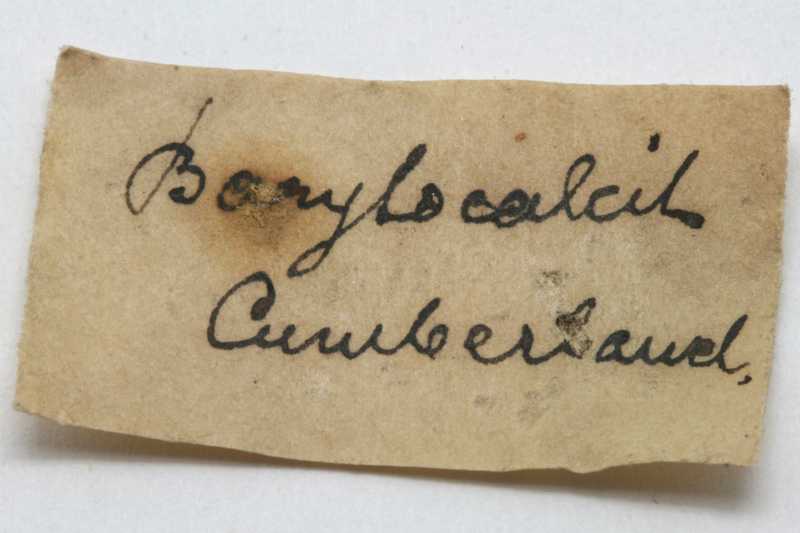 Barytocalcit
Cumberland.